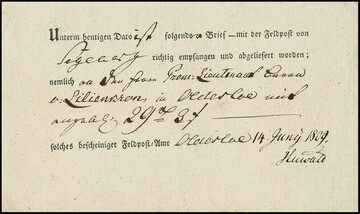 Unterm heutigen Dato ist folgender Brief mit der Feldpost von
richtig empfangen und abgeliefert worden;
nemlich an den Herrn Prem: Lieutenant Baron
v: Liliencron in Oldesloe mit
29 rℓ 3 ß
solches bescheiniget Feldpost-Amt Oldesloe 14 Juny 1809.